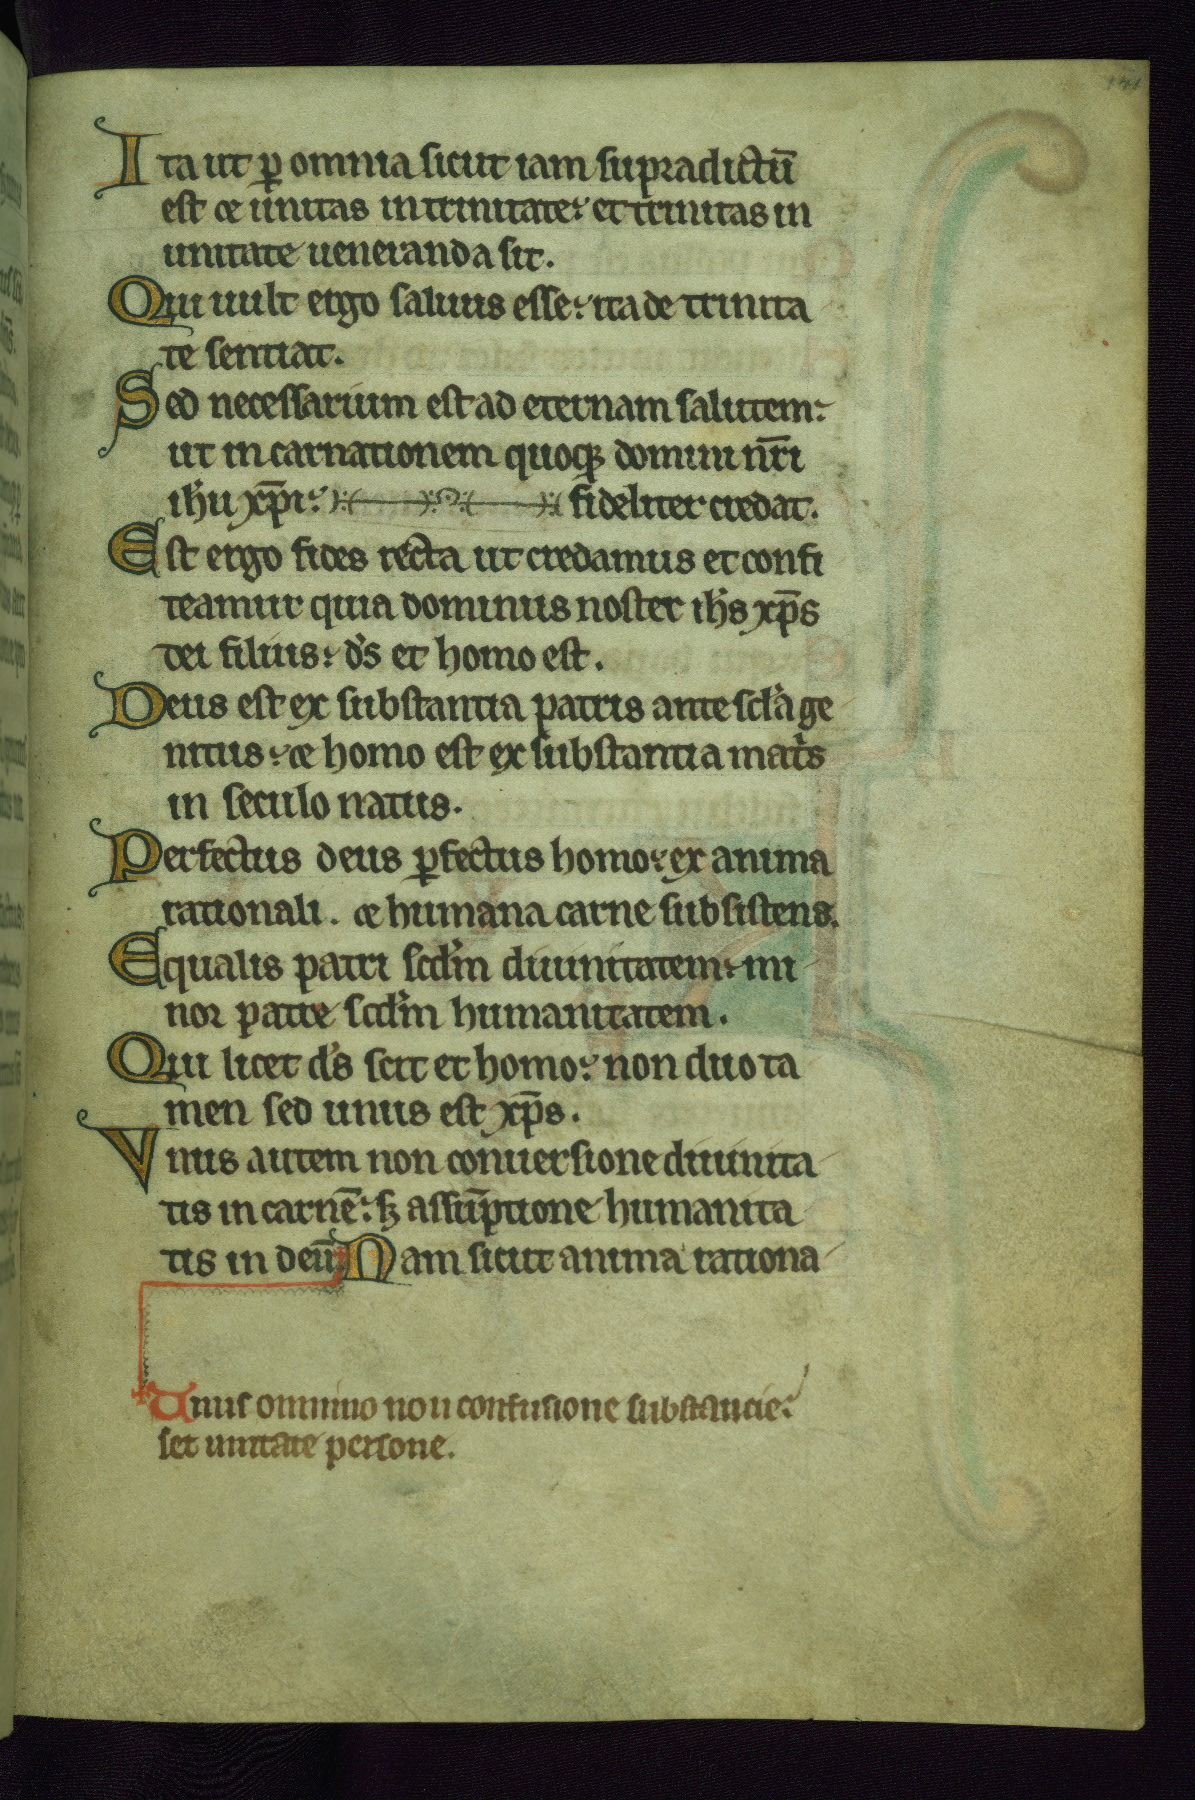 Ita ut ꝑ omnia sicut iam supradictū
est ⁊ unitas in trinitate: et trinitas in
unitate ueneranda sit.
Qui uult ergo saluus esse: ita de trinita
te sentiat.
Sed necessarium est ad eternam salutem:
ut in carnationem quoqꝫ domini nr̄i
ih̄u xp̄i: fideliter credat.
Est ergo fides recta ut credamus et confi
teamur quia dominus noster ih̄s xp̄s
dei filius: d̄s et homo est.
Deus est ex substantia patris ante scl̄a ge
nitus: ⁊ homo est ex substantia mat̄s
in seculo natus.
Perfectus deus ꝑfectus homo: ex anima
rationali. ⁊ humana carne subsistens.
Equalis patri scd̄m diuinitatem: mi
nor patre scd̄m humanitatem.
Qui licet d̄s sit et homo: non duo ta
men sed unus est xp̄s.
Vnus autem non conuersione diuinita
tis in carnē: sꝫ assūptione humanita
tis in deū Nam sicut anima rationa
Unus omnino non confusione substancie:
set unitate persone.